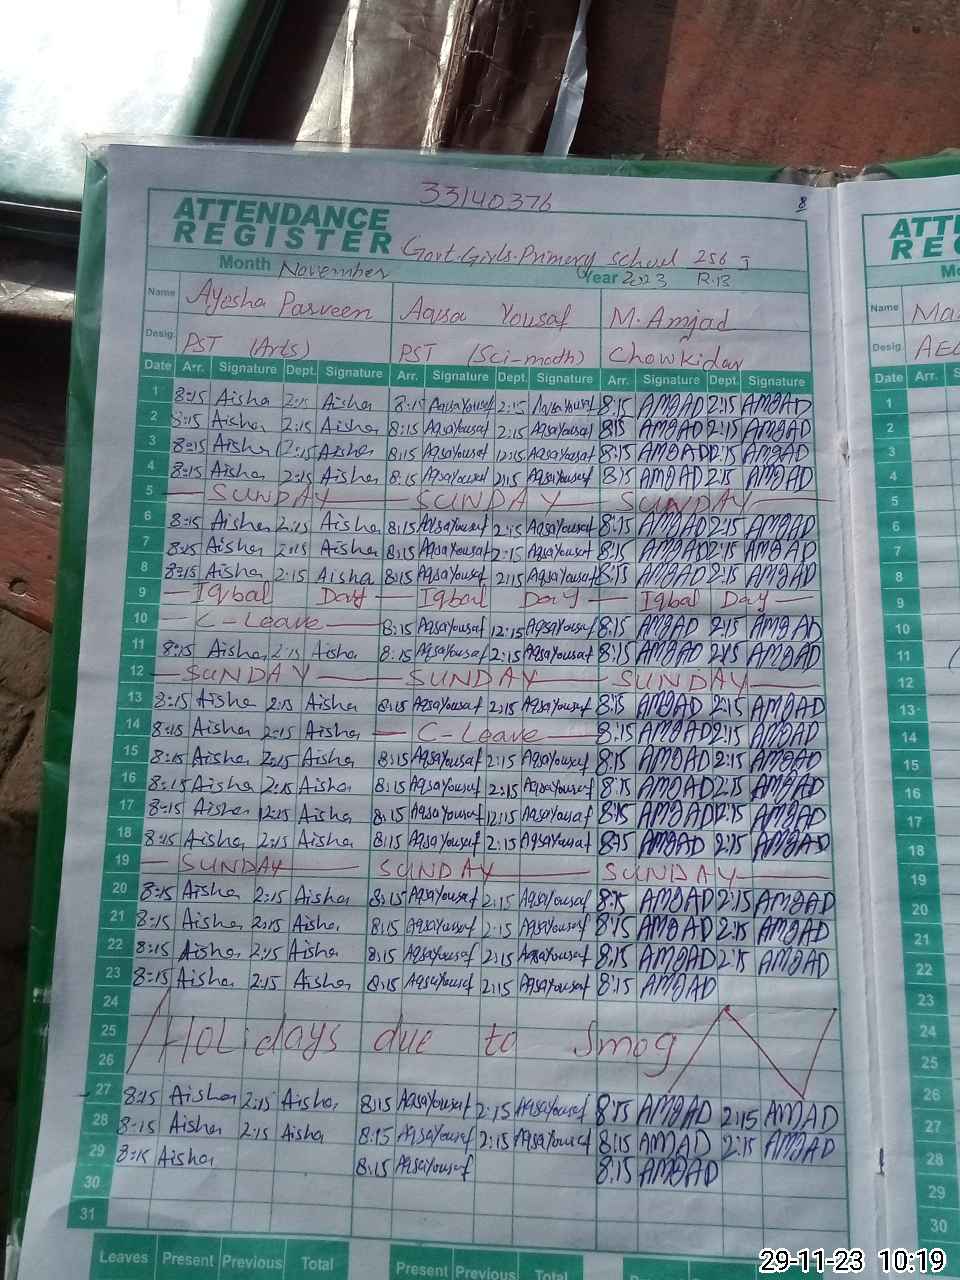 33140376
8
ATTENDANCE
REGISTER Govt. Girls. Primary school 256 J
Month November Year 2023 R.B
Name Ayesha Parveen Aqsa Yousaf M. Amjad
Desig. PST (Arts) PST (Sci-math) Chowkidar
Date Arr. Signature Dept. Signature Arr. Signature Dept. Signature Arr. Signature Dept. Signature
1 8:15 Aisha 2:15 Aisha 8:15 AqsaYousaf 2:15 AqsaYousaf 8:15 AMJAD 2:15 AMJAD
2 8:15 Aisha 2:15 Aisha 8:15 AqsaYousaf 2:15 AqsaYousaf 8:15 AMJAD 2:15 AMJAD
3 8:15 Aisha 12:15 Aisha 8:15 AqsaYousaf 12:15 AqsaYousaf 8:15 AMJAD 12:15 AMJAD
4 8:15 Aisha 2:15 Aisha 8:15 AqsaYousaf 2:15 AqsaYousaf 8:15 AMJAD 2:15 AMJAD
5 SUNDAY SUNDAY SUNDAY
6 8:15 Aisha 2:15 Aisha 8:15 AqsaYousaf 2:15 AqsaYousaf 8:15 AMJAD 2:15 AMJAD
7 8:15 Aisha 2:15 Aisha 8:15 AqsaYousaf 2:15 AqsaYousaf 8:15 AMJAD 2:15 AMJAD
8 8:15 Aisha 2:15 Aisha 8:15 AqsaYousaf 2:15 AqsaYousaf 8:15 AMJAD 2:15 AMJAD
9 Iqbal Day Iqbal Day Iqbal Day
10 C-Leave 8:15 AqsaYousaf 12:15 AqsaYousaf 8:15 AMJAD 2:15 AMJAD
11 8:15 Aisha 2:15 Aisha 8:15 AqsaYousaf 2:15 AqsaYousaf 8:15 AMJAD 2:15 AMJAD
12 SUNDAY SUNDAY SUNDAY
13 8:15 Aisha 2:15 Aisha 8:15 AqsaYousaf 2:15 AqsaYousaf 8:15 AMJAD 2:15 AMJAD
14 8:15 Aisha 2:15 Aisha C-Leave 8:15 AMJAD 2:15 AMJAD
15 8:15 Aisha 2:15 Aisha 8:15 AqsaYousaf 2:15 AqsaYousaf 8:15 AMJAD 2:15 AMJAD
16 8:15 Aisha 2:15 Aisha 8:15 AqsaYousaf 2:15 AqsaYousaf 8:15 AMJAD 2:15 AMJAD
17 8:15 Aisha 12:15 Aisha 8:15 AqsaYousaf 12:15 AqsaYousaf 8:15 AMJAD 12:15 AMJAD
18 8:15 Aisha 2:15 Aisha 8:15 AqsaYousaf 2:15 AqsaYousaf 8:15 AMJAD 2:15 AMJAD
19 SUNDAY SUNDAY SUNDAY
20 8:15 Aisha 2:15 Aisha 8:15 AqsaYousaf 2:15 AqsaYousaf 8:15 AMJAD 2:15 AMJAD
21 8:15 Aisha 2:15 Aisha 8:15 AqsaYousaf 2:15 AqsaYousaf 8:15 AMJAD 2:15 AMJAD
22 8:15 Aisha 2:15 Aisha 8:15 AqsaYousaf 2:15 AqsaYousaf 8:15 AMJAD 2:15 AMJAD
23 8:15 Aisha 2:15 Aisha 8:15 AqsaYousaf 2:15 AqsaYousaf 8:15 AMJAD
24
25 Holidays due to Smog
26
27 8:15 Aisha 2:15 Aisha 8:15 AqsaYousaf 2:15 AqsaYousaf 8:15 AMJAD 2:15 AMJAD
28 8:15 Aisha 2:15 Aisha 8:15 AqsaYousaf 2:15 AqsaYousaf 8:15 AMJAD 2:15 AMJAD
29 8:15 Aisha 8:15 AqsaYousaf 8:15 AMJAD
30
31
Leaves Present Previous Total Present Previous Total
Name
Desig.
Date Arr.
1
2
3
4
5
6
7
8
9
10
11
12
13
14
15
16
17
18
19
20
21
22
23
24
25
26
27
28
29
30
29-11-23 10:19